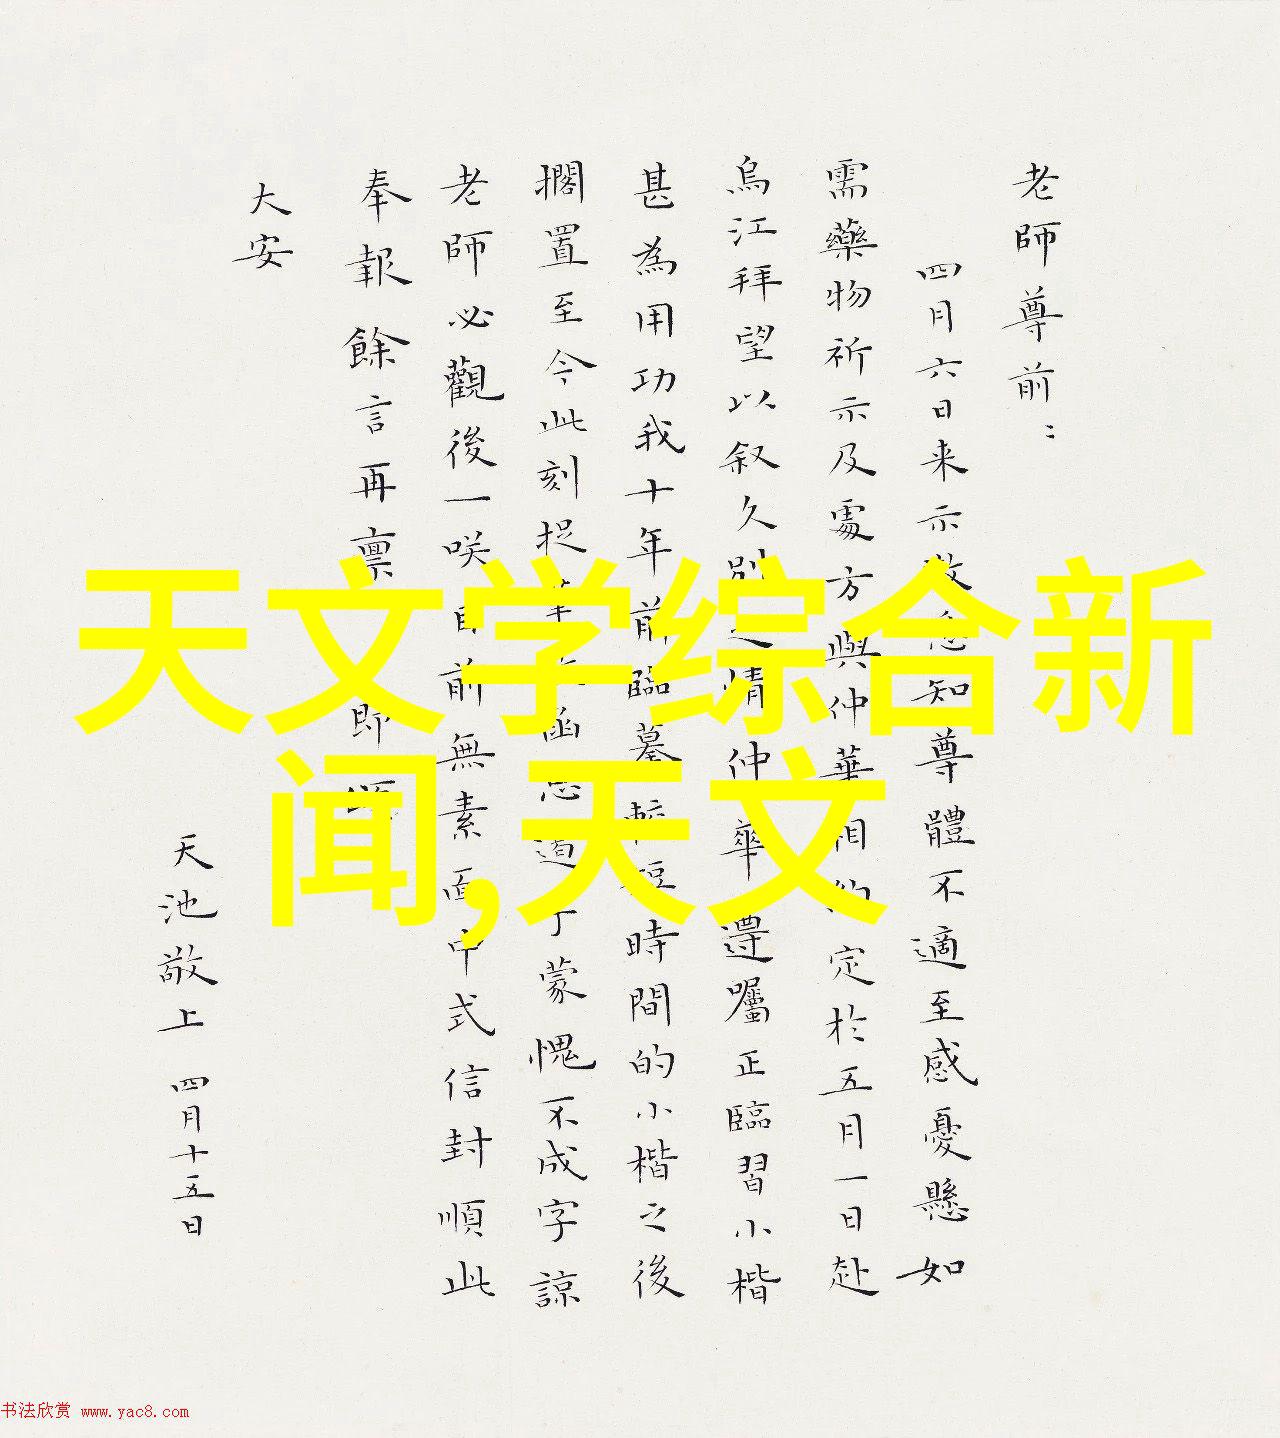 老師尊前：
四月六日来示敬悉知尊體不適至感憂懸如
需藥物祈示及處方與仲華相約定於五月一日赴
烏江拜望以叙久别之情仲華遵囑正臨習小楷
甚為用功我十年前臨摹較短時間的小楷之後
擱置至今此刻捉筆函道蒙愧不成字諒
老師必觀後一咲目前無素面中式信封順此
奉報餘言再禀即
大安
天池敬上 四月十五日
天文学综合新
闻,天文
书法欣赏 www.yac8.com